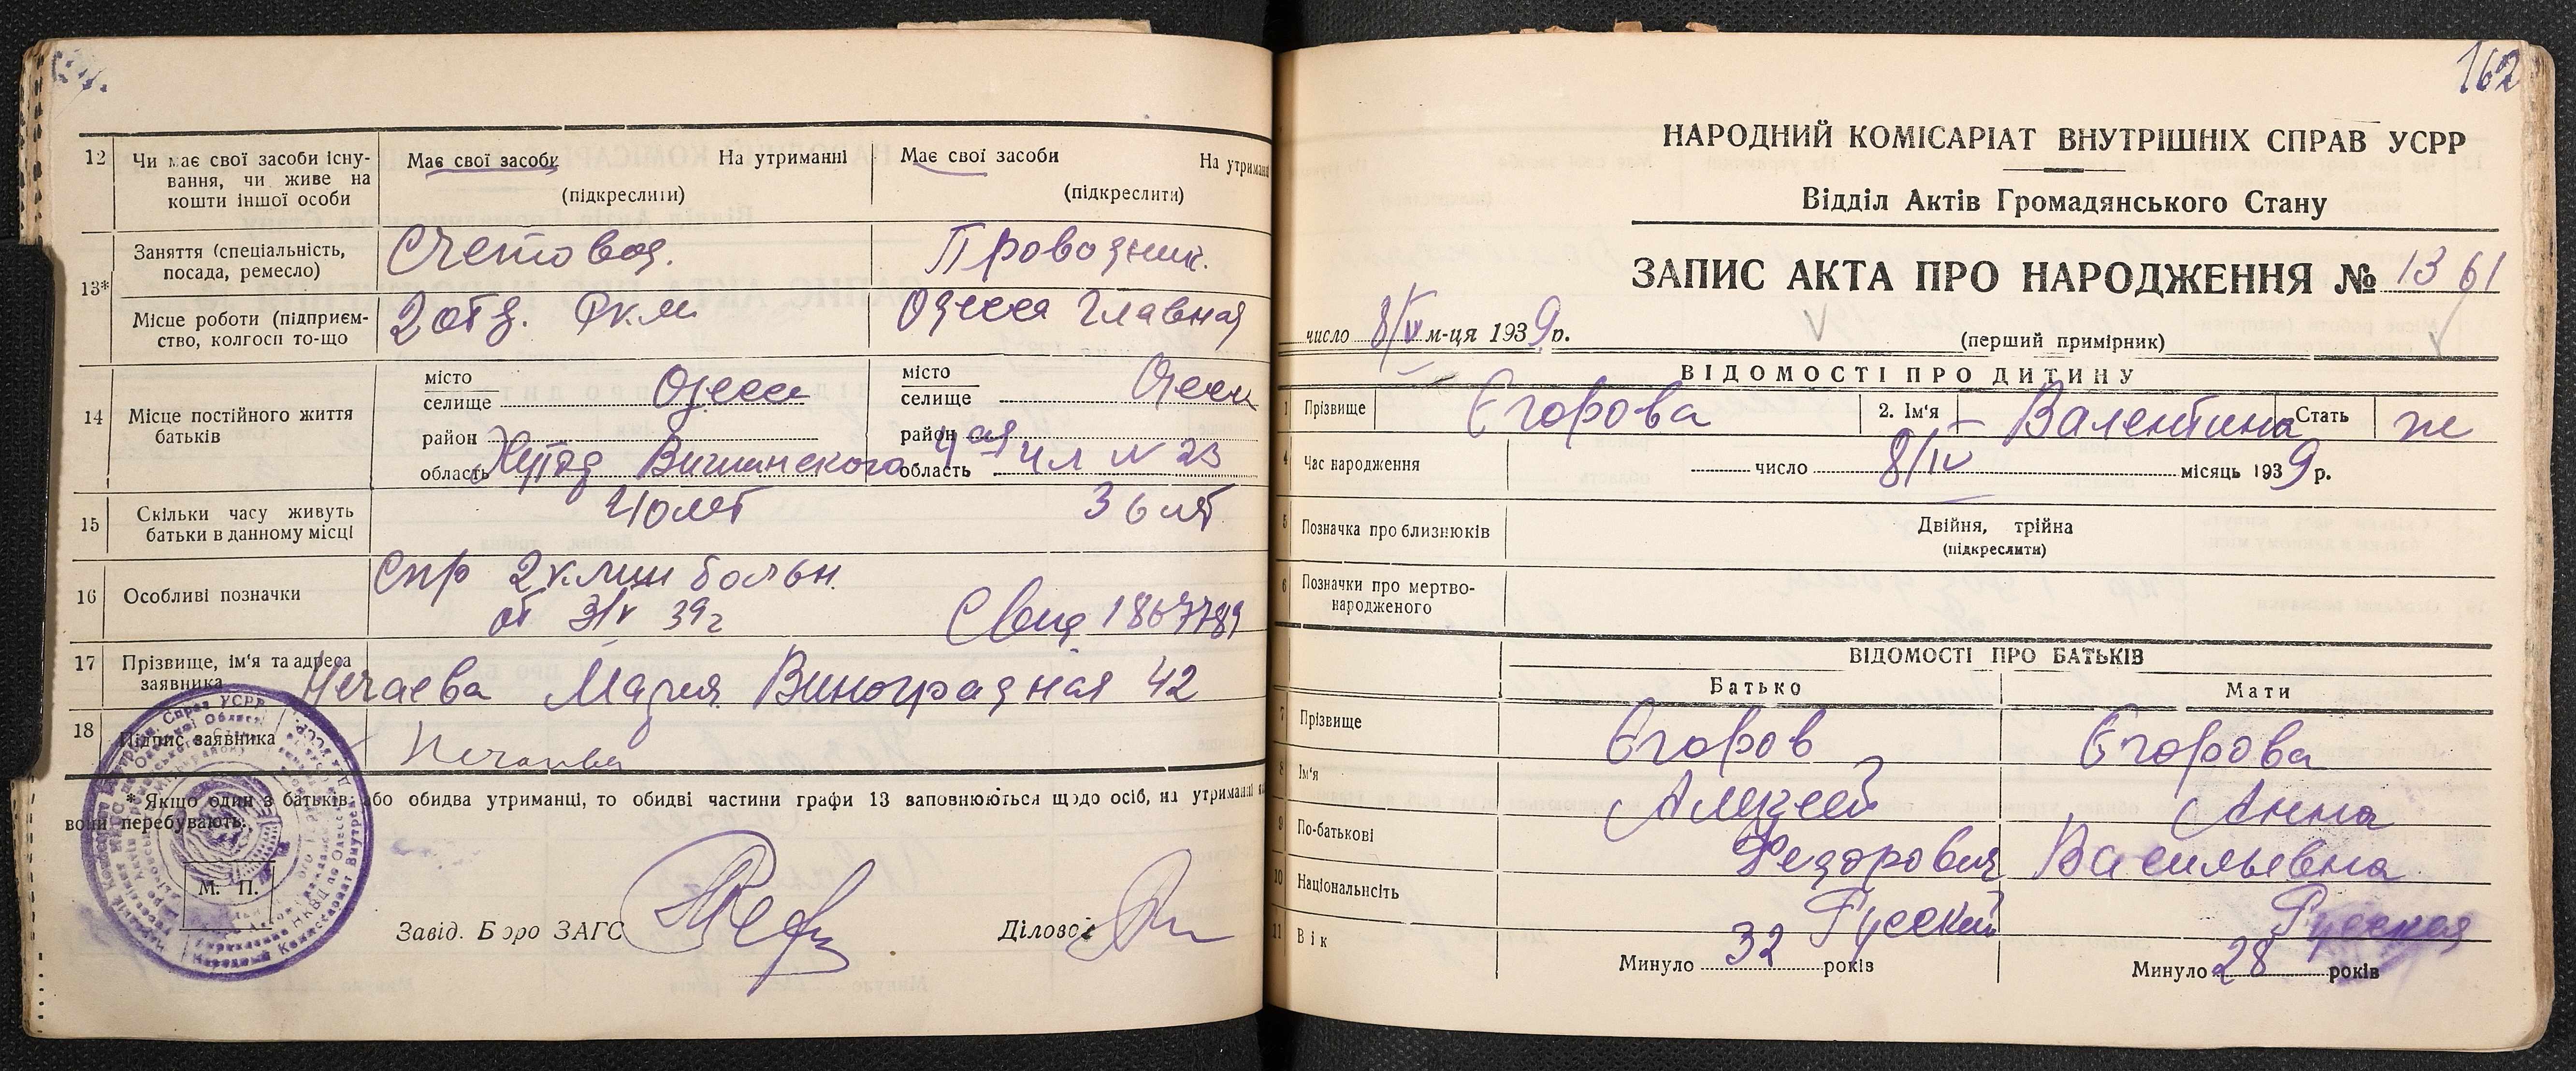 12 Чи має свої засоби існування, чи живе на кошти іншої особи
Має свої засоби На утриманні
(підкреслити)
Має свої засоби На утриманні
(підкреслити)
13*
Заняття (спеціальність, посада, ремесло)
Счетовод.
Проводник.
Місце роботи (підприємство, колгосп то-що
2 отд. Ркм
Одесса Главная
14 Місце постійного життя батьків
місто селище Одесса
район
область Хутор Вишинского
місто селище Одесса
район 4 ая
область № 23
15 Скільки часу живуть батьки в данному місці
4 лет
36 лет
16 Особливі позначки
Спр 2 клин больн.
от 39 г
Свид 1867789
17 Прізвище, ім'я та адреса заявника
Нечаева Мария Виноградная 42
18 Підпис заявника
Нечаева
* Якщо один з батьків, або обидва утриманці, то обидві частини графи 13 заповнюються щодо осіб, на утриманні
вони перебувають.
М. П.
Завід. Бюро ЗАГС
Діловод
162
НАРОДНИЙ КОМІСАРІАТ ВНУТРІШНІХ СПРАВ УСРР
Відділ Актів Громадянського Стану
ЗАПИС АКТА ПРО НАРОДЖЕННЯ № 1361
число 8/IV м-ця 1939 р.
(перший примірник)
ВІДОМОСТІ ПРО ДИТИНУ
1 Прізвище Егорова 2. Ім'я Валентина Стать ж
4 Час народження число 8/IV місяць 1939 р.
5 Позначка про близнюків Двійня, трійна
(підкреслити)
6 Позначки про мертвонародженого
ВІДОМОСТІ ПРО БАТЬКІВ
Батько Мати
7 Прізвище Егоров Егорова
8 Ім'я Алексей Анна
9 По-батькові Федорович Васильевна
10 Національність Русский Русская
11 Вік Минуло 32 років Минуло 28 років